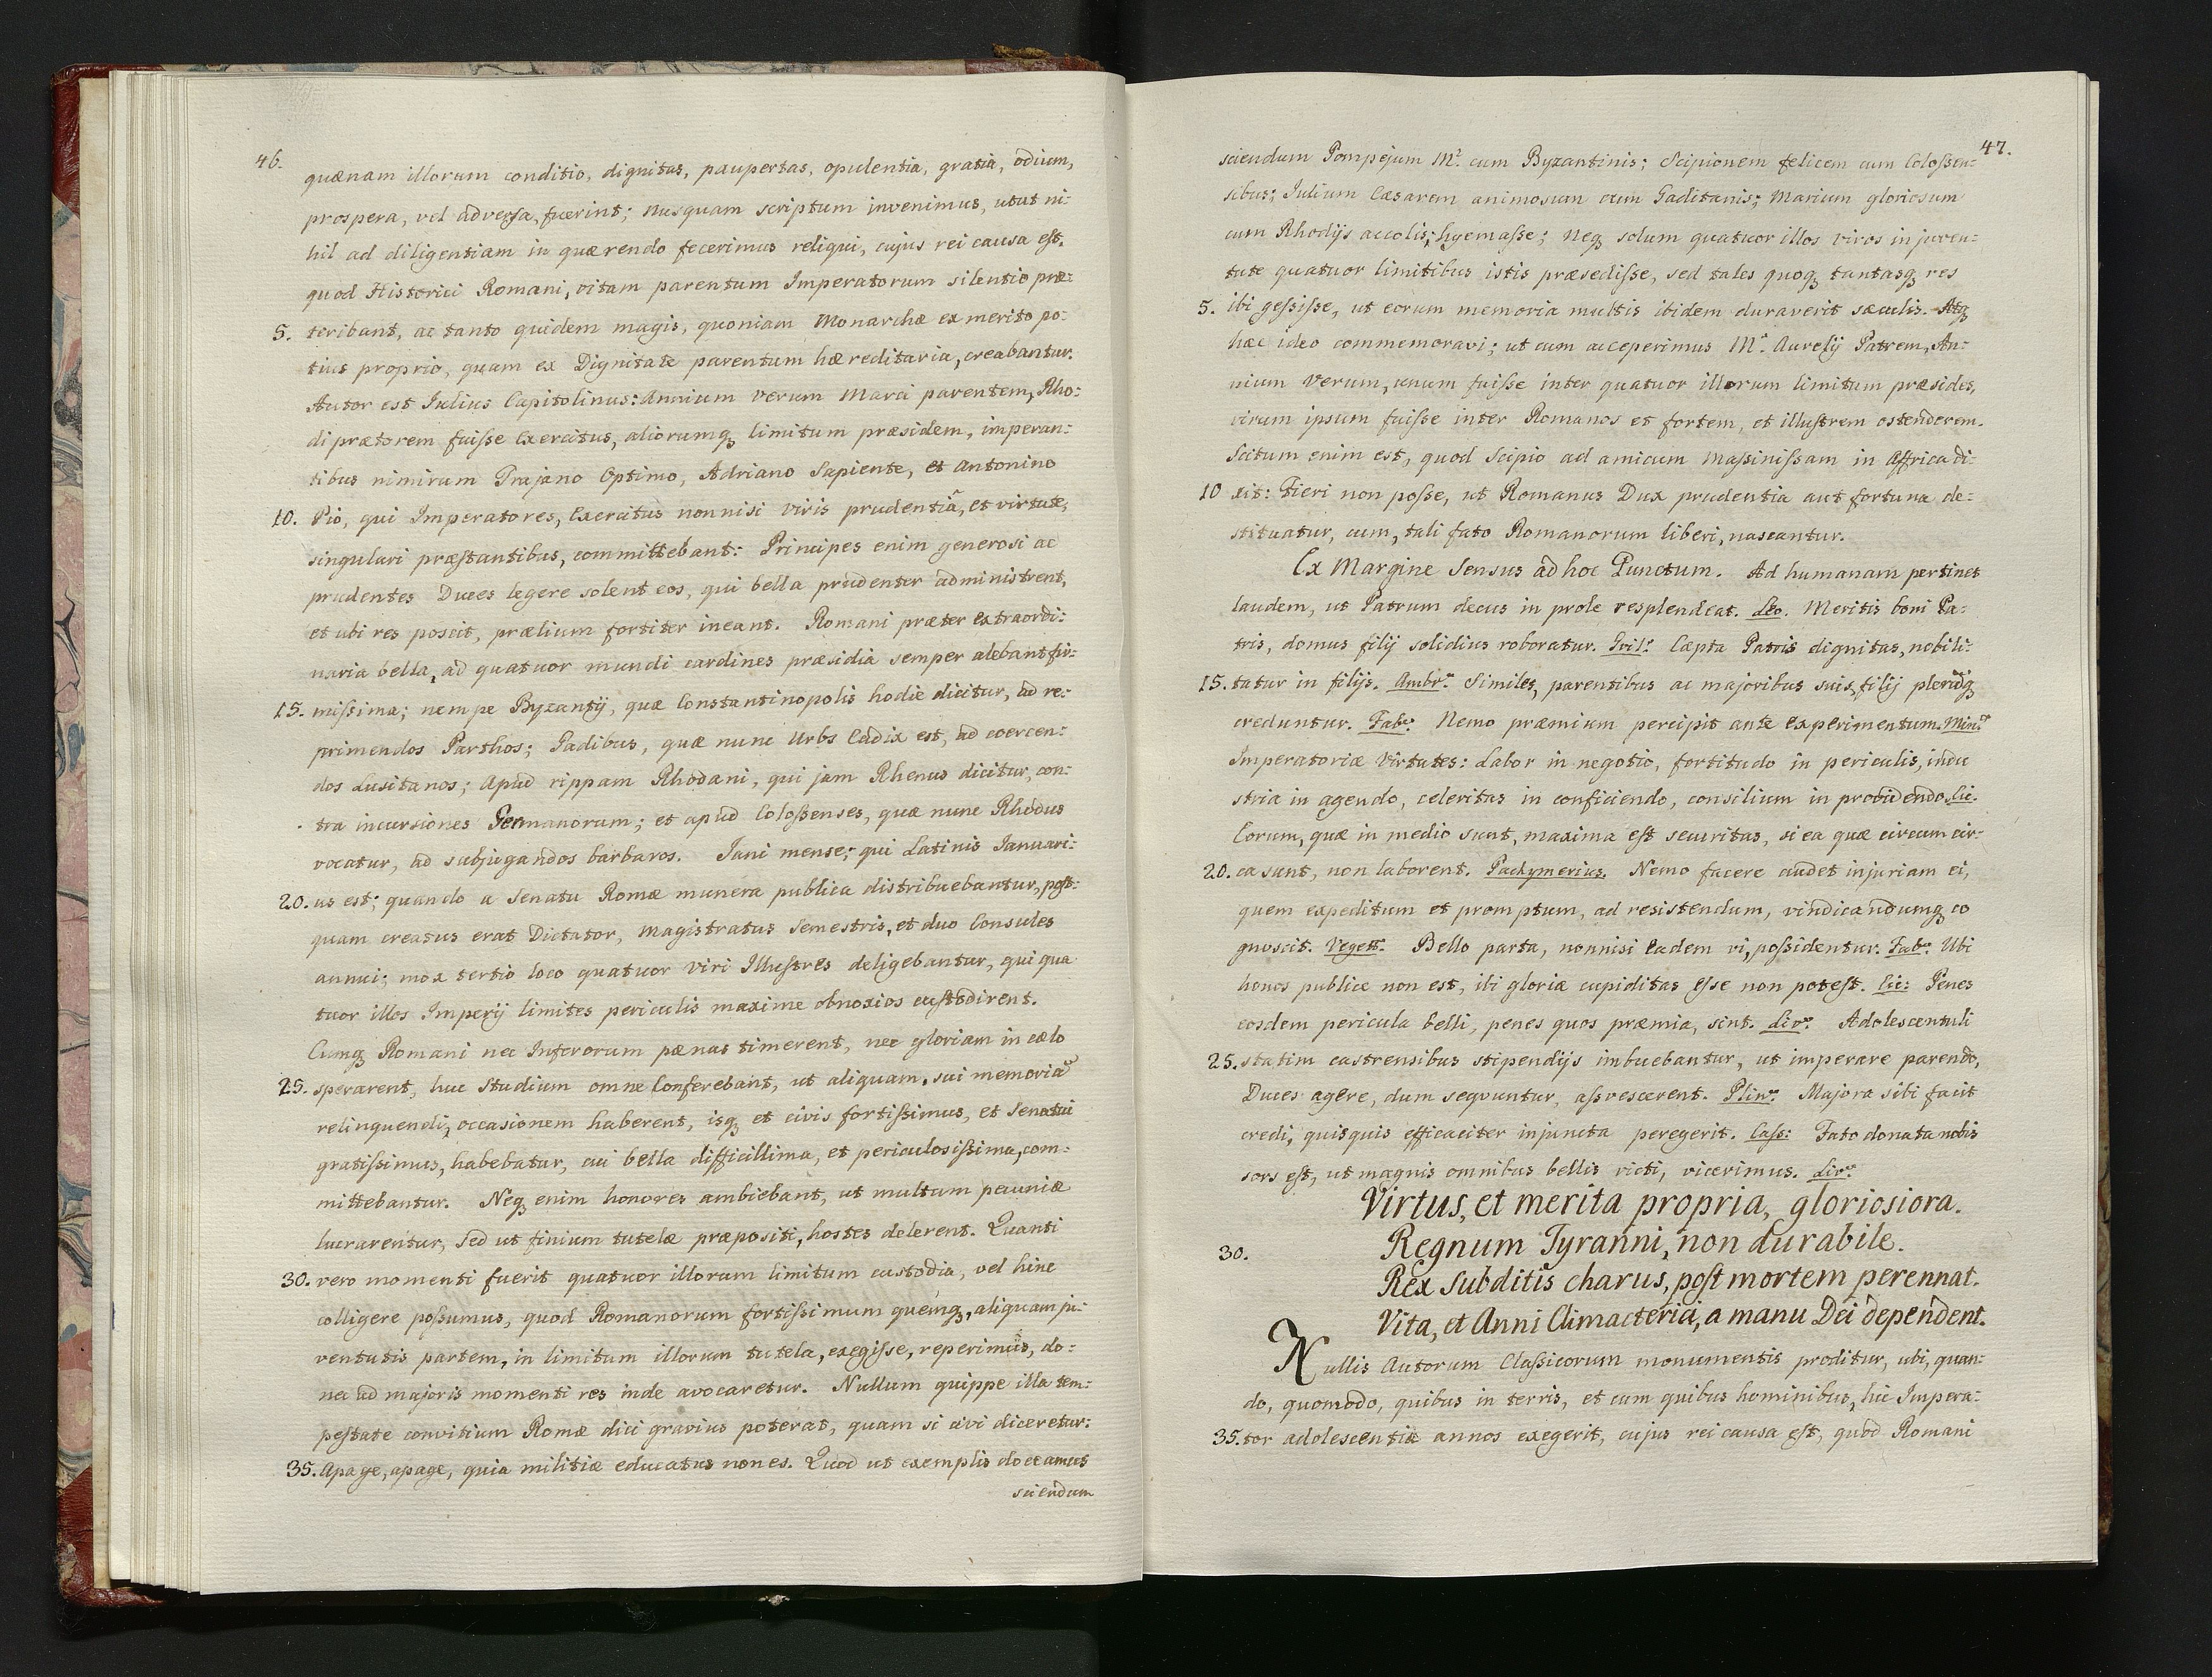 46.
quænam illorum conditio, dignitas, paupertas, opulentia, gratia, odium,
prospera, vel adversa, fuerint; nusquam scriptum invenimus, utut ni:
hil ad diligentiam in quærendo fecerimus reliqui, cujus rei causa est.
quod Historici Romani, vitam parentum Imperatorum silentio præ:
5. teribant, ac tanto quidem magis, quoniam Monarchæ ex merito po:
tius proprio, quam ex Dignitate parentum hæreditaria, creabantur.
Autor est Iulius Capitolinus: Annium Verum Marci parentem, Rho:
di prætorem fuisse Exercitus, aliorumq limitum præsidem, imperan:
tibus nimirum Trajano Optimo, Adriano Sapiente, et Antonino
10. Pio, qui Imperatores, Exercitus nonnisi viris prudentiâ, et virtute,
singulari præstantibus, committebant: Principes enim generosi ac
prudentes Duces legere solent eos, qui bella prudenter administrent,
et ubi res poscit, prælium fortiter ineant. Romani præter extraordi:
naria bella, ad quatuor mundi cardines præsidia semper alebant fir:
15. missima; nempe Byzantij, quæ Constantinopolis hodie dicitur, ad re:
primendos Parthos; Gadibus, quæ nunc Urbs Cadix est, ad coercen:
dos Lusitanos; Apud rippam Rhodani, qui jam Rhenus dicitur, con:
tra incursiones Germanorum; et apud Colossenses, quæ nunc Rhodus
vocatur, ad subjugandos barbaros. Iani mense; qui Latinis Ianuari:
20. us est; quando a Senatu Romæ munera publica distribuebantur, post:
quam creatus erat Dictator, Magistratus Semestris, et duo Consules
annui; mox tertio loco quatuor viri Illustres deligebantur, qui qua
tuor illos Imperij limites periculis maxime obnoxios custodirent.
Cumq Romani nec Inferorum pœnas timerent, nec gloriam in cælo
25. sperarent, huc studium omne conferebant, ut aliquam sui memoriã
relinquendi, occasionem haberent, isq et civis fortissimus, et Senatui
gratissimus, habebatur, cui bella difficillima, et periculosissima, com:
mittebantur. Neq enim honores ambiebant, ut multum pecuniæ
lucrarentur, sed ut finium tutelæ præpositi, hostes delerent. Quanti
30. vero momenti fuerit quatuor illorum limitum custodia, vel hinc
colligere possumus, quod Romanorum fortissimum quemq, aliquam ju:
ventutis partem, in limitum illorum tutela, exegisse, reperimus, do:
nec ad majoris momenti res inde avocaretur. Nullum quippe illa tem:
pestate convitium Romæ dici gravius poterat, quam si civi diceretur:
35. Apage, apage, quia militiæ educatus non es. Quod ut exemplis doceamus
sciendum
47.
sciendum Pompejum M. cum Byzantinis; Scipionem felicem cum Colossen:
sibus; Iulium Cæsarem animosum cum Gaditanis; Marium gloriosum
cum Rhodijs accolis; hyemasse; neq solum quatuor illos viros in juven:
tute quatuor limitibus istis præsedisse, sed tales quoq tantasq res
5. ibi gessisse, ut eorum memoria multis ibidem duraverit sæculis. Atq
hæc ideo commemoravi; ut cum acceperimus M. Aurelij Patrem, An:
nium Verum, unum fuisse inter quatuor illorum limitum præsides,
virum ipsum fuisse inter Romanos et fortem, et illustrem ostenderem.
Scitum enim est, quod Scipio ad amicum Massinissam in Affrica di:
10 xit: Fieri non posse, ut Romanus Dux prudentia aut fortuna de:
stituatur, cum, tali fato Romanorum liberi, nascantur.
Ex Margine Sensus ad hoc Punctum. Ad humanam pertinet
laudem, ut Patrum decus in prole resplendeat. Leo. Meritis boni Pa:
tris, domus filij solidius roboratur. Cæpta Patris dignitas, nobili:
15. tatur in filijs. Ambr. Similes, parentibus ac majoribus suis, filij plerũq
creduntur. Fab. Nemo præmium percipit ante experimentum. Min.
Imperatoriæ Virtutes: Labor in negotio, fortitudo in periculis, indu
stria in agendo, celeritas in conficiendo, consilium in providendo. Cic.
Eorum, quæ in medio sunt, maxima est securitas, si ea quæ circum cir:
20. ca sunt, non laborent. Pachymerius. Nemo facere audet injuriam ei,
quem expeditum et promptum, ad resistendum, vindicandumq co
gnoscit. Veget. Bello parta, nonnisi eadem vi, possidentur. Fab. Ubi
honos publice non est, ibi gloriæ cupiditas esse non potest. Cic: Penes
eosdem pericula belli, penes quos præmia, sint. Liv. Adolescentuli
25. statim castrensibus stipendijs imbuebantur, ut imperare parendo,
Duces agere, dum seqvuntur, assvescerent. Plin. Majora sibi facit
credi, quisquis efficaciter injuncta peregerit. Cass: Fato donata nobis
sors est, ut magnis omnibus bellis victi, vicerimus. Liv.
Virtus, et merita propria, gloriosiora.
30. Regnum Tyranni, non durabile.
Rex Subditis charus, post mortem perennat.
Vita, et Anni Climacterici, a manu Dei dependent.
Nullis Autorum Classicorum monumentis proditur, ubi, quan:
do, quomodo, quibus in terris, et cum quibus hominibus, hic Impera:
35. tor adolescentiæ annos exegerit, cujus rei causa est, quod Romani